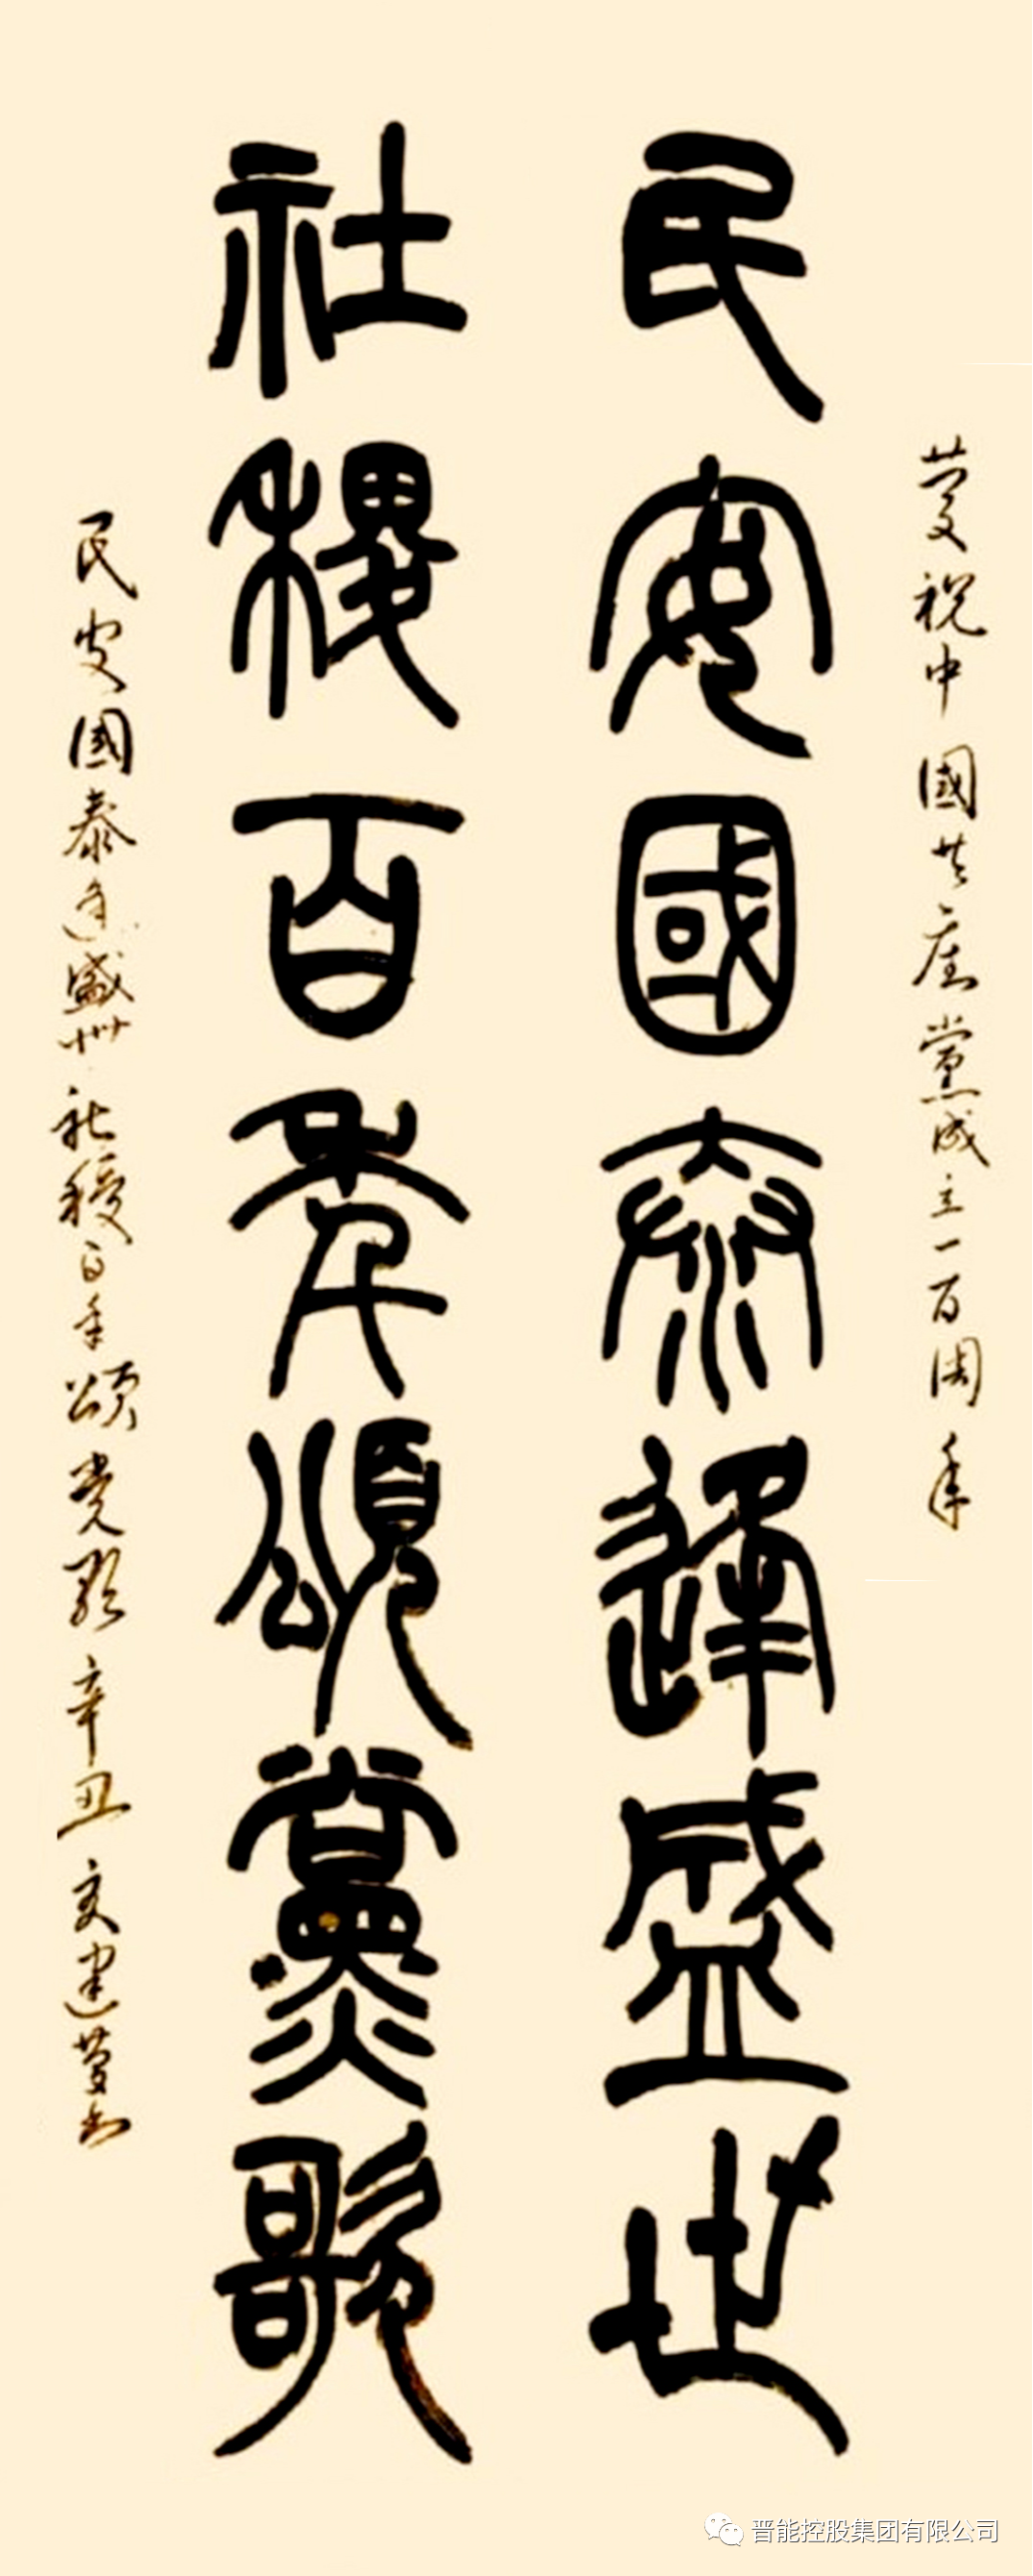 慶祝中國共產黨成立一百周年
民安國泰逢盛世
社稷百年頌黨歌
民安國泰逢盛世社稷百年頌党歌 辛丑 建慶书
晋能控股集团有限公司